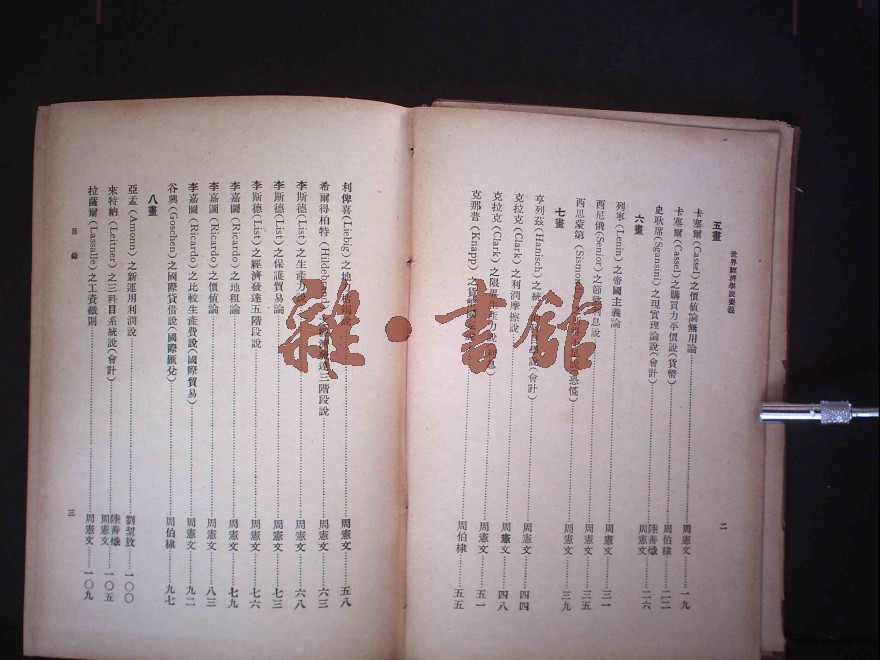 世界經濟學說要義
二
五畫
卡塞爾(Cassel)之價値論無用論 周憲文 一九
卡塞爾(Cassel)之購買力平價說(貨幣) 周伯棣 二二
史耿席(Sgansini)之現實理論說(會計) 陸善熾 周憲文 二六
六畫
列寧(Lenin)之帝國主義論 周憲文 三一
西尼俄(Senior)之節慾利息說 周憲文 三五
西思蒙第 周憲文 三九
七畫
亨列茲(Hanisch)之統 學說(會計)
克拉克(Clark)之利潤摩擦說 周憲文 四四
克拉克(Clark)之限界生產力說 周憲文 四八
克那普(Knapp)之貨幣 周憲文 五一
周伯棣 五五
利俾喜(Liebig)之地 說 周憲文 五八
希爾得柏特 三階段說 周憲文 六三
李斯德(List)之生產力說 周憲文 六八
李斯德(List)之保護貿易論 周憲文 七三
李斯德(List)之經濟發達五階段說 周憲文 七六
李嘉圖(Ricardo)之地租論 周憲文 七九
李嘉圖(Ricardo)之價値論 周憲文 八三
李嘉圖(Ricardo)之比較生產費說(國際貿易) 周憲文 九二
谷興(Goschen)之國際貸借說(國際匯兌) 周伯棣 九七
八畫
亞孟(Amonn)之新運用利潤說 劉絜敖 一〇〇
來特納(Leitner)之三科目系統說(會計) 陸善熾 周憲文 一〇五
拉薩爾(Lassalle)之工資鐵則 周憲文 一〇九
目錄
三
雜·書館